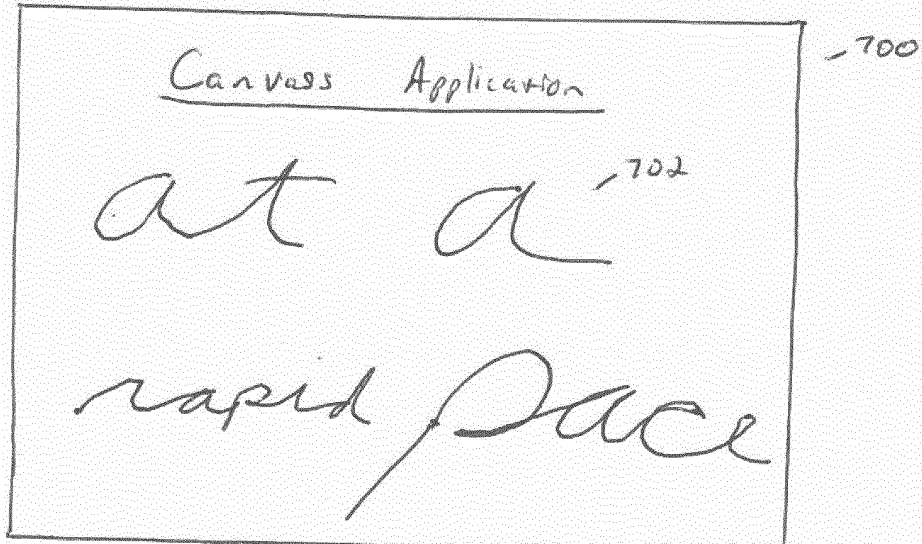 700
Canvass Application
702
at a
rapid pace